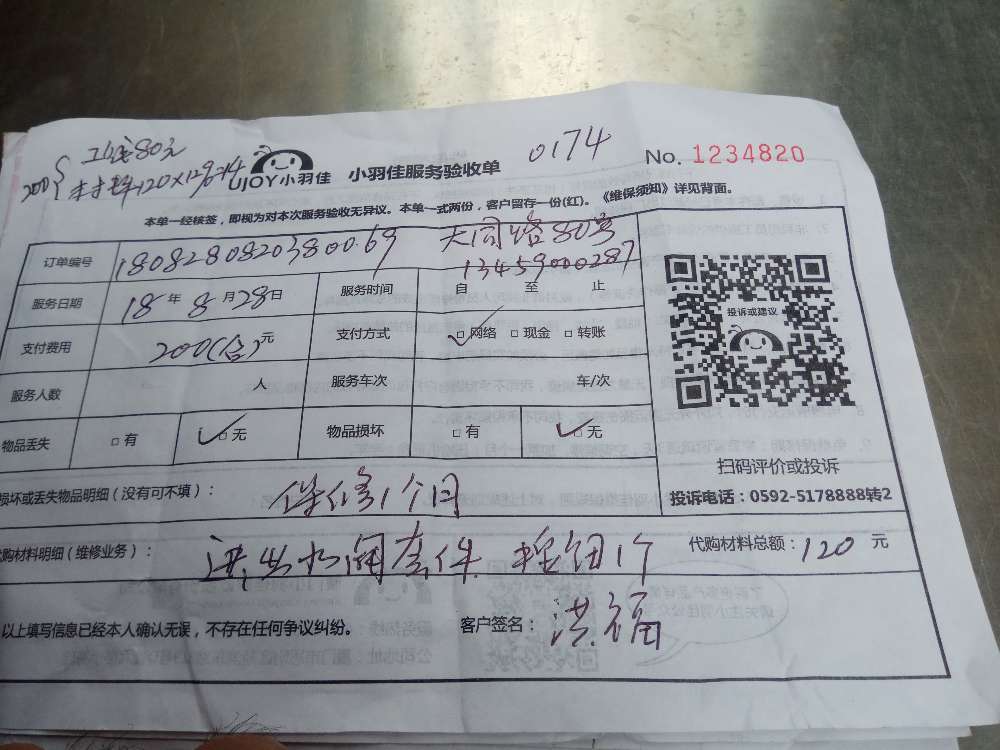 工钱80元
200{材料120×12%=14
UJOY小羽佳 小羽佳服务验收单 0174 No. 1234820
本单一经核签，即视为对本次服务验收无异议。本单一式两份，客户留存一份(红)。《维保须知》详见背面。
订单编号 18082808203800.69 大同路80号
13459000287
服务日期 18年8月28日 服务时间 自 至 止
支付费用 200(合)元 支付方式 网络 现金 转账
服务人数 人 服务车次 车/次
物品丢失 有 无 物品损坏 有 无
投诉或建议
扫码评价或投诉
投诉电话：0592-5178888转2
损坏或丢失物品明细（没有可不填）： 保修1个月
代购材料明细（维修业务）： 进出水阀套件 按钮1个 代购材料总额：120元
以上填写信息已经本人确认无误，不存在任何争议纠纷。 客户签名：洪福